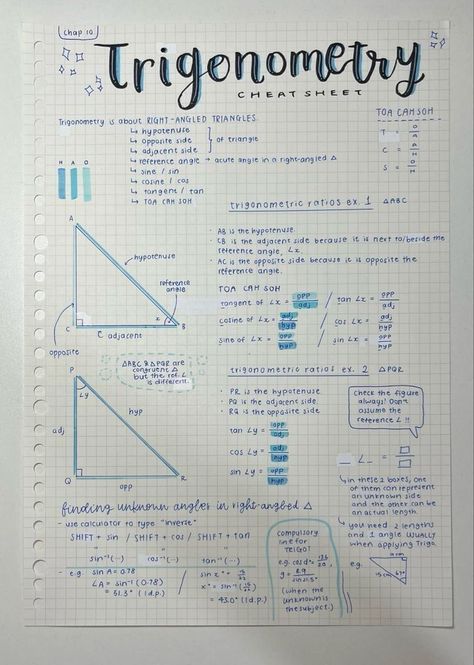 Chap 10
Trigonometry
CHEAT SHEET
Trigonometry is about RIGHT-ANGLED TRIANGLES
↳ hypotenuse
↳ opposite side } of triangle
↳ adjacent side
↳ reference angle → acute angle in a right-angled △
↳ sine / sin
↳ cosine / cos
↳ tangent / tan
↳ TOA CAH SOH
H A O
TOA CAH SOH
T = O/A
C = A/H
S = O/H
trigonometric ratios ex. 1 △ABC
A
hypotenuse
reference angle
x
C
B
C adjacent
opposite
· AB is the hypotenuse.
· CB is the adjacent side because it is next to/beside the
reference angle, ∠x.
· AC is the opposite side because it is opposite the
reference angle.
TOA CAH SOH
tangent of ∠x = opp/adj / tan ∠x = opp/adj
cosine of ∠x = adj/hyp / cos ∠x = adj/hyp
sine of ∠x = opp/hyp / sin ∠x = opp/hyp
△ABC & △PQR are
congruent △
but the ref. ∠
is different.
trigonometric ratios ex. 2 △PQR
P
∠y
hyp
adj
Q
opp
R
· PR is the hypotenuse
· PQ is the adjacent side.
· RQ is the opposite side
tan ∠y = opp/adj
cos ∠y = adj/hyp
sin ∠y = opp/hyp
Check the figure
always! Don't
assume the
reference ∠ !!
_ ∠_ = □/□
↳ in these 2 boxes, one
of them can represent
an unknown side
and the other can be
an actual length.
↳ you need 2 lengths
and 1 angle USUALLY
when applying Trigo.
e.g.
finding unknown angles in right-angled △
- use calculator to type "inverse"
SHIFT + sin / SHIFT + cos / SHIFT + tan
" " "
sin⁻¹(···) cos⁻¹(···) tan⁻¹(···)
- e.g. sin A = 0.78
∠A = sin⁻¹(0.78)
= 51.3° (1d.p.)
sin x° = 15/22
x° = sin⁻¹(15/22)
= 43.0° (1d.p.)
compulsory
line for
TRIGO!
e.g. cos d° =
g =
(when the
unknown is
the subject.)